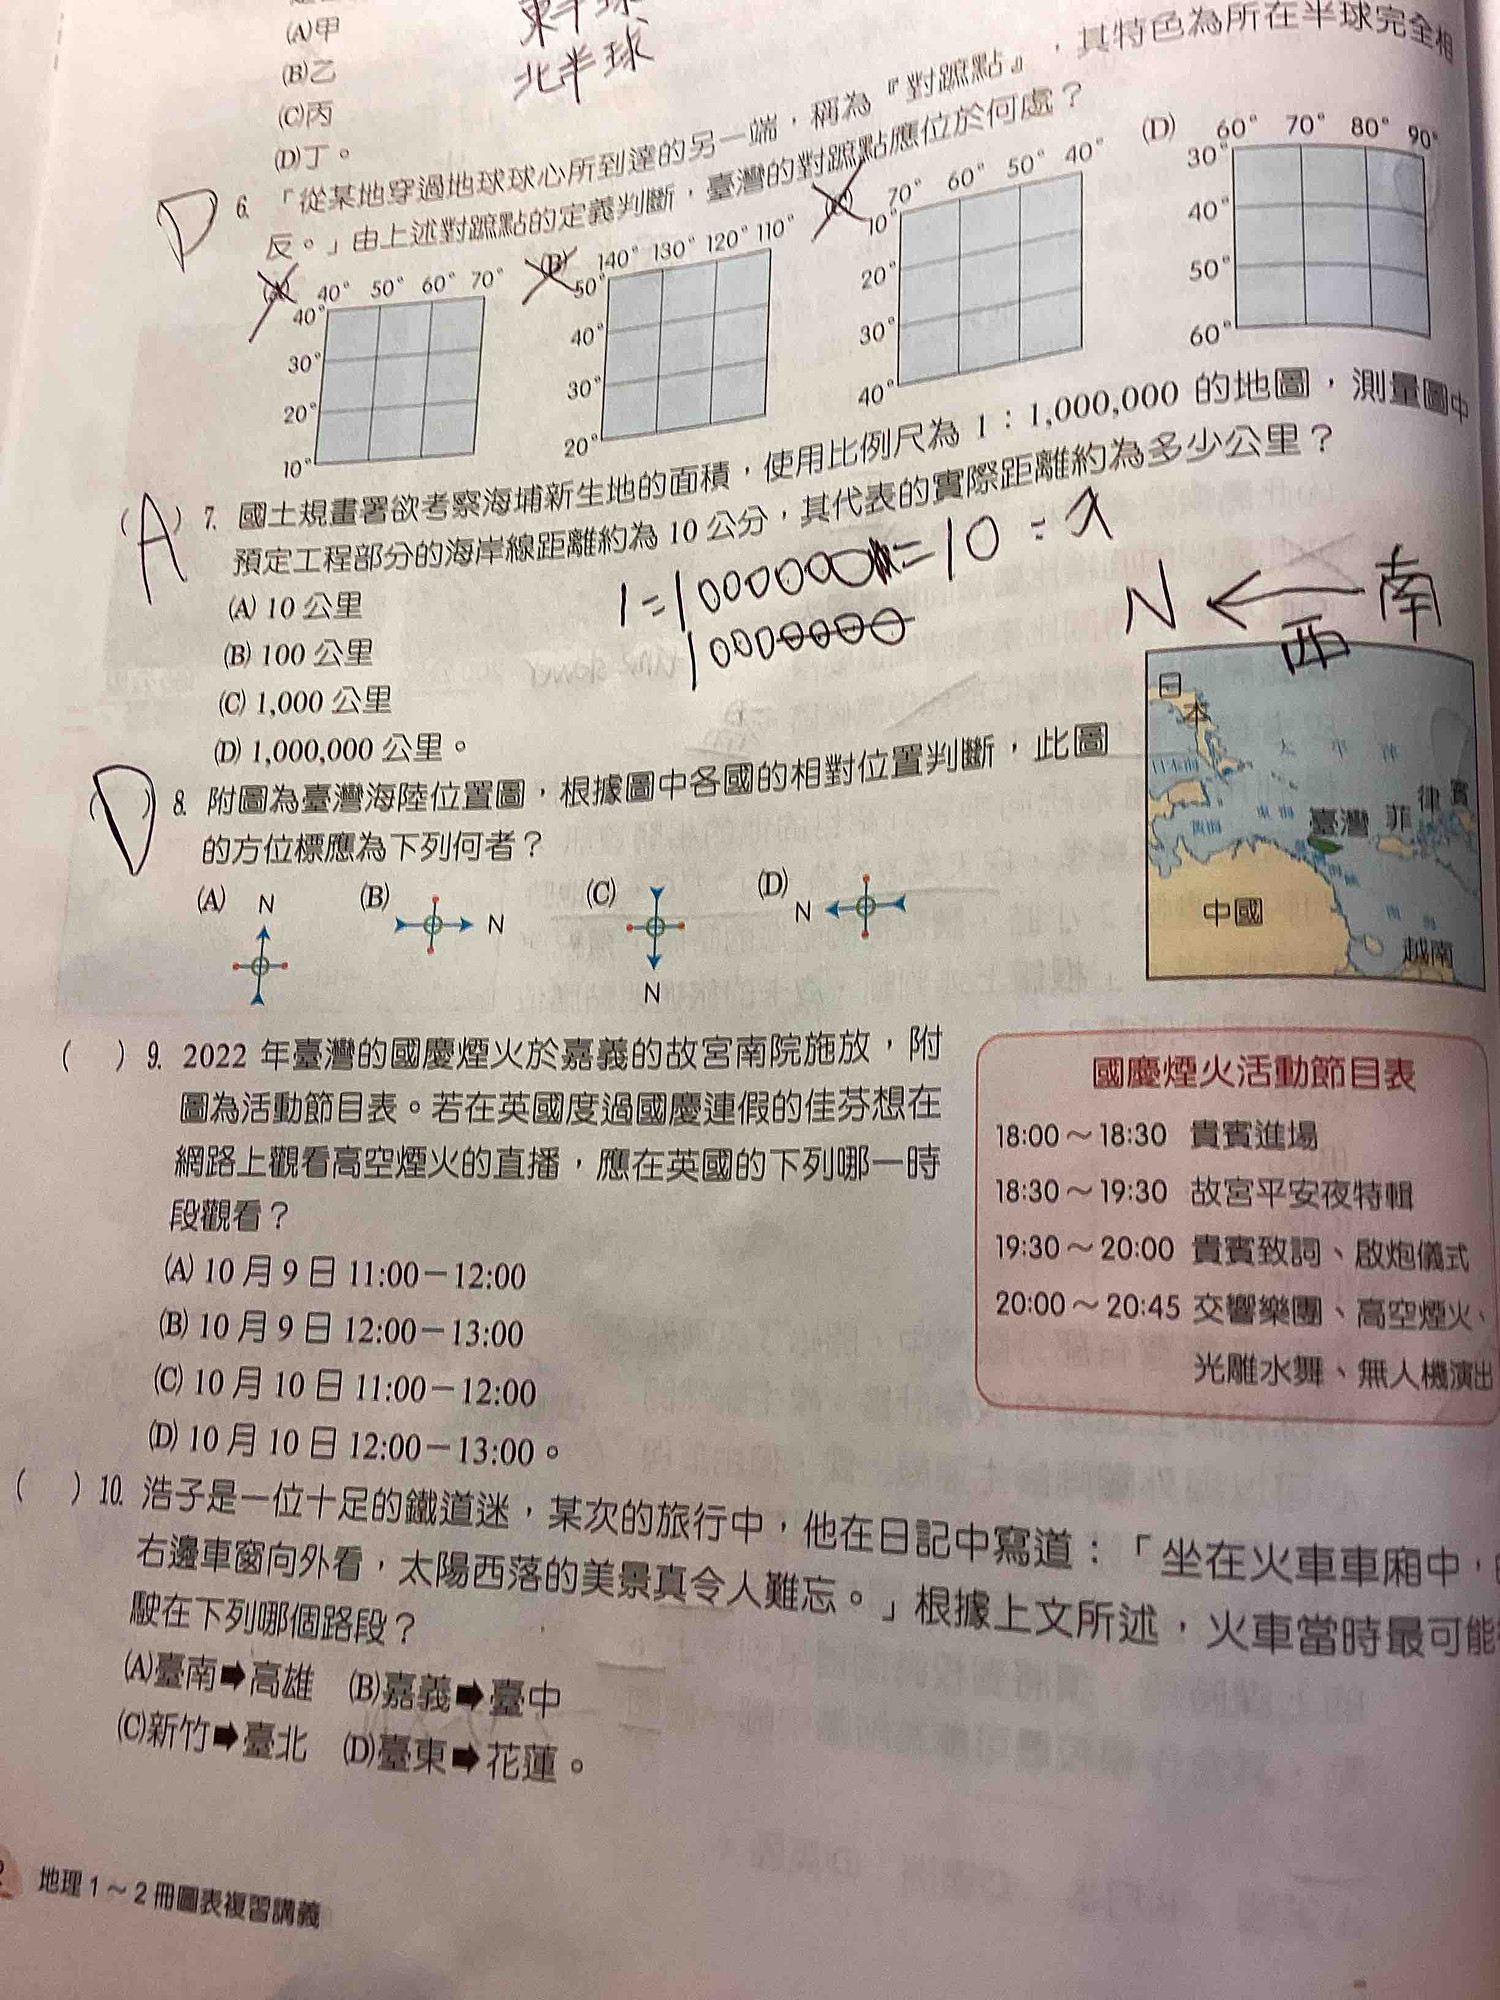 (A)甲
(B)乙
(C)丙
(D)丁。
北半球
D 6. 「從某地穿過地球球心所到達的另一端，稱為『對蹠點』，其特色為所在半球完全相
反。」由上述對蹠點的定義判斷，臺灣的對蹠點應位於何處？
(A) 40° 50° 60° 70°
40°
30°
20°
10°
(B) 140° 130° 120° 110°
50°
40°
30°
20°
70° 60° 50° 40°
10°
20°
30°
40°
(D) 60° 70° 80° 90°
30°
40°
50°
60°
(A) 7. 國土規畫署欲考察海埔新生地的面積，使用比例尺為 1：1,000,000 的地圖，測量圖中
預定工程部分的海岸線距離約為 10 公分，其代表的實際距離約為多少公里？
(A) 10 公里
(B) 100 公里
(C) 1,000 公里
(D) 1,000,000 公里。
N ← 南
西
(D) 8. 附圖為臺灣海陸位置圖，根據圖中各國的相對位置判斷，此圖
的方位標應為下列何者？
(A) N
(B) N
(C) N
(D) N
日本
太平洋
日本海
東海
黃海
臺灣
菲律賓
中國
南海
越南
( ) 9. 2022 年臺灣的國慶煙火於嘉義的故宮南院施放，附
圖為活動節目表。若在英國度過國慶連假的佳芬想在
網路上觀看高空煙火的直播，應在英國的下列哪一時
段觀看？
(A) 10 月 9 日 11:00－12:00
(B) 10 月 9 日 12:00－13:00
(C) 10 月 10 日 11:00－12:00
(D) 10 月 10 日 12:00－13:00。
國慶煙火活動節目表
18:00～18:30 貴賓進場
18:30～19:30 故宮平安夜特輯
19:30～20:00 貴賓致詞、啟炮儀式
20:00～20:45 交響樂團、高空煙火、
光雕水舞、無人機演出
( ) 10. 浩子是一位十足的鐵道迷，某次的旅行中，他在日記中寫道：「坐在火車車廂中，
右邊車窗向外看，太陽西落的美景真令人難忘。」根據上文所述，火車當時最可能
駛在下列哪個路段？
(A)臺南➡高雄 (B)嘉義➡臺中
(C)新竹➡臺北 (D)臺東➡花蓮。
地理 1～2 冊圖表複習講義